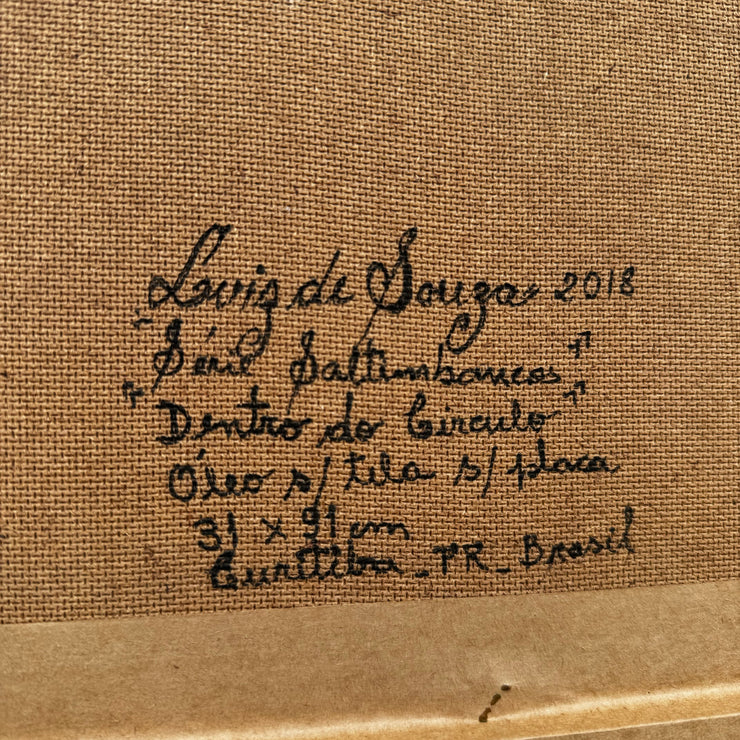 Luiz de Souza 2018
"Série Saltimbancos"
"Dentro do Círculo"
Óleo s/ tela s/ placa
31 x 91 cm
Curitiba - PR - Brasil